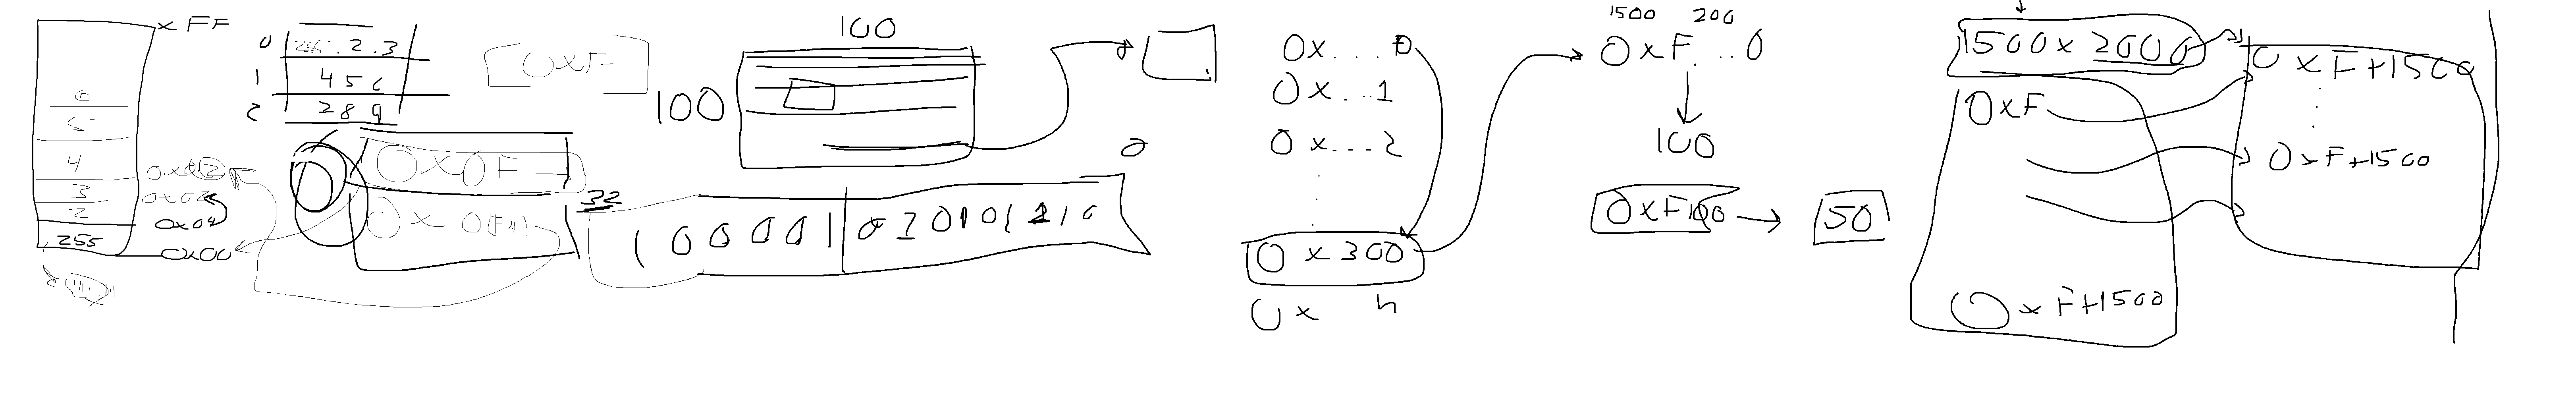 xFF
6
5
4
3
2
255
0x02
0x04
0x00
0 255.2.3
1 456
2 289
[0xF]
0x0F
32
100
100
100001
0x...0
0x...1
0x...2
0x300
0x n
1500 200
0xF...0
100
0xF100
50
1500x2000
0xF
0xF+1500
0xF+1500
0xF+1500